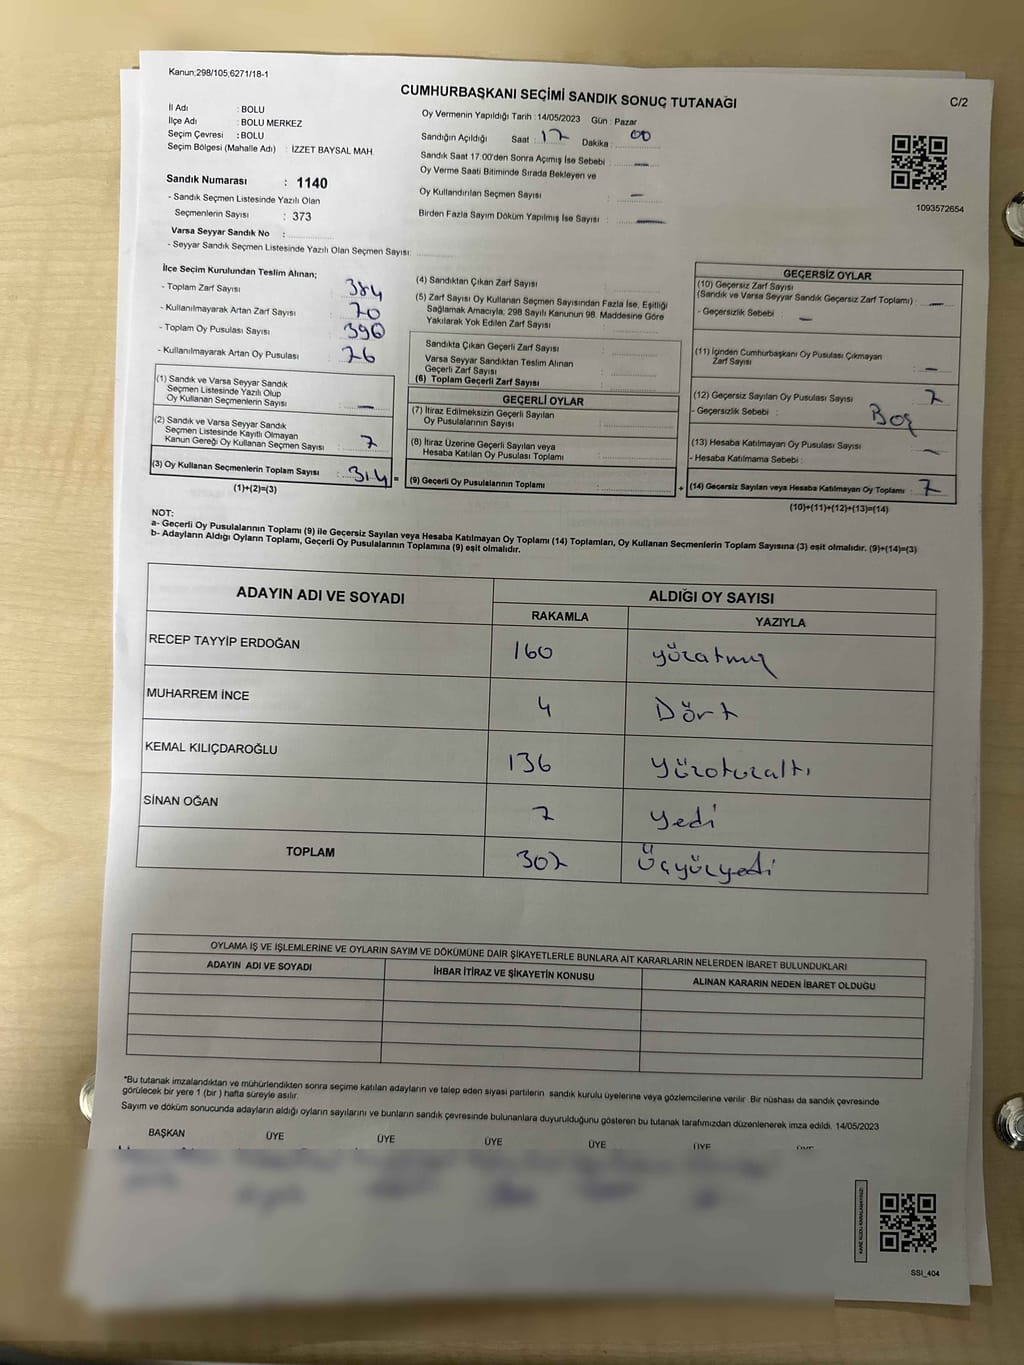 Kanun;298/105,6271/18-1
CUMHURBAŞKANI SEÇİMİ SANDIK SONUÇ TUTANAĞI
C/2
İl Adı : BOLU
İlçe Adı : BOLU MERKEZ
Seçim Çevresi : BOLU
Seçim Bölgesi (Mahalle Adı) : İZZET BAYSAL MAH.
Sandık Numarası : 1140
- Sandık Seçmen Listesinde Yazılı Olan
Seçmenlerin Sayısı : 373
Varsa Seyyar Sandık No :
- Seyyar Sandık Seçmen Listesinde Yazılı Olan Seçmen Sayısı:
Oy Vermenin Yapıldığı Tarih :14/05/2023 Gün : Pazar
Sandığın Açıldığı Saat : 17 Dakika : 00
Sandık Saat 17:00'den Sonra Açımış İse Sebebi : —
Oy Verme Saati Bitiminde Sırada Bekleyen ve
Oy Kullandırılan Seçmen Sayısı : —
Birden Fazla Sayım Döküm Yapılmış İse Sayısı : —
1093572654
İlçe Seçim Kurulundan Teslim Alınan;
- Toplam Zarf Sayısı : 384
- Kullanılmayarak Artan Zarf Sayısı : 70
- Toplam Oy Pusulası Sayısı : 390
- Kullanılmayarak Artan Oy Pusulası : 76
(1) Sandık ve Varsa Seyyar Sandık
Seçmen Listesinde Yazılı Olup
Oy Kullanan Seçmenlerin Sayısı : —
(2) Sandık ve Varsa Seyyar Sandık
Seçmen Listesinde Kayıtlı Olmayan
Kanun Gereği Oy Kullanan Seçmen Sayısı : 7
(3) Oy Kullanan Seçmenlerin Toplam Sayısı : 314
(1)+(2)=(3)
(4) Sandıktan Çıkan Zarf Sayısı :
(5) Zarf Sayısı Oy Kullanan Seçmen Sayısından Fazla İse, Eşitliği
Sağlamak Amacıyla; 298 Sayılı Kanunun 98. Maddesine Göre
Yakılarak Yok Edilen Zarf Sayısı :
Sandıkta Çıkan Geçerli Zarf Sayısı :
Varsa Seyyar Sandıktan Teslim Alınan
Geçerli Zarf Sayısı :
(6) Toplam Geçerli Zarf Sayısı :
GEÇERLİ OYLAR
(7) İtiraz Edilmeksizin Geçerli Sayılan
Oy Pusulalarının Sayısı :
(8) İtiraz Üzerine Geçerli Sayılan veya
Hesaba Katılan Oy Pusulası Toplamı :
= (9) Geçerli Oy Pusulalarının Toplamı :
GEÇERSİZ OYLAR
(10) Geçersiz Zarf Sayısı
(Sandık ve Varsa Seyyar Sandık Geçersiz Zarf Toplamı) : —
- Geçersizlik Sebebi : —
(11) İçinden Cumhurbaşkanı Oy Pusulası Çıkmayan
Zarf Sayısı : —
(12) Geçersiz Sayılan Oy Pusulası Sayısı : 7
- Geçersizlik Sebebi : Boş
(13) Hesaba Katılmayan Oy Pusulası Sayısı : —
- Hesaba Katılmama Sebebi :
+ (14) Geçersiz Sayılan veya Hesaba Katılmayan Oy Toplamı : 7
(10)+(11)+(12)+(13)=(14)
NOT:
a- Geçerli Oy Pusulalarının Toplamı (9) ile Geçersiz Sayılan veya Hesaba Katılmayan Oy Toplamı (14) Toplamları, Oy Kullanan Seçmenlerin Toplam Sayısına (3) eşit olmalıdır. (9)+(14)=(3)
b- Adayların Aldığı Oyların Toplamı, Geçerli Oy Pusulalarının Toplamına (9) eşit olmalıdır.
ADAYIN ADI VE SOYADI
ALDIĞI OY SAYISI
RAKAMLA YAZIYLA
RECEP TAYYİP ERDOĞAN 160 yüzatmış
MUHARREM İNCE 4 Dört
KEMAL KILIÇDAROĞLU 136 yüzotuzaltı
SİNAN OĞAN 7 yedi
TOPLAM 307 Üçyüzyedi
OYLAMA İŞ VE İŞLEMLERİNE VE OYLARIN SAYIM VE DÖKÜMÜNE DAİR ŞİKAYETLERLE BUNLARA AİT KARARLARIN NELERDEN İBARET BULUNDUKLARI
ADAYIN ADI VE SOYADI İHBAR İTİRAZ VE ŞİKAYETİN KONUSU ALINAN KARARIN NEDEN İBARET OLDUĞU
*Bu tutanak imzalandıktan ve mühürlendikten sonra seçime katılan adayların ve talep eden siyasi partilerin sandık kurulu üyelerine veya gözlemcilerine verilir. Bir nüshası da sandık çevresinde
görülecek bir yere 1 (bir) hafta süreyle asılır.
Sayım ve döküm sonucunda adayların aldığı oyların sayılarını ve bunların sandık çevresinde bulunanlara duyurulduğunu gösteren bu tutanak tarafımızdan düzenlenerek imza edildi. 14/05/2023
BAŞKAN ÜYE ÜYE ÜYE ÜYE ÜYE ÜYE
SSI_404